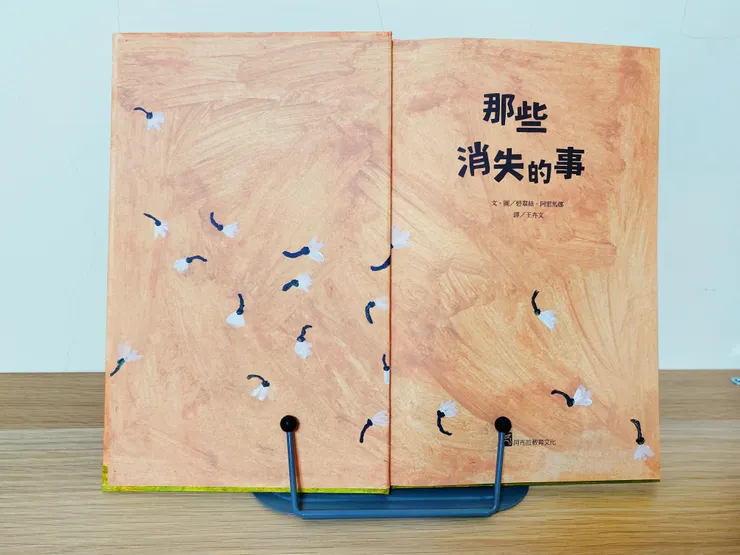 那些
消失的事
文・圖／碧翠絲・阿雷馬娜
譯／王卉文
阿布拉教育文化